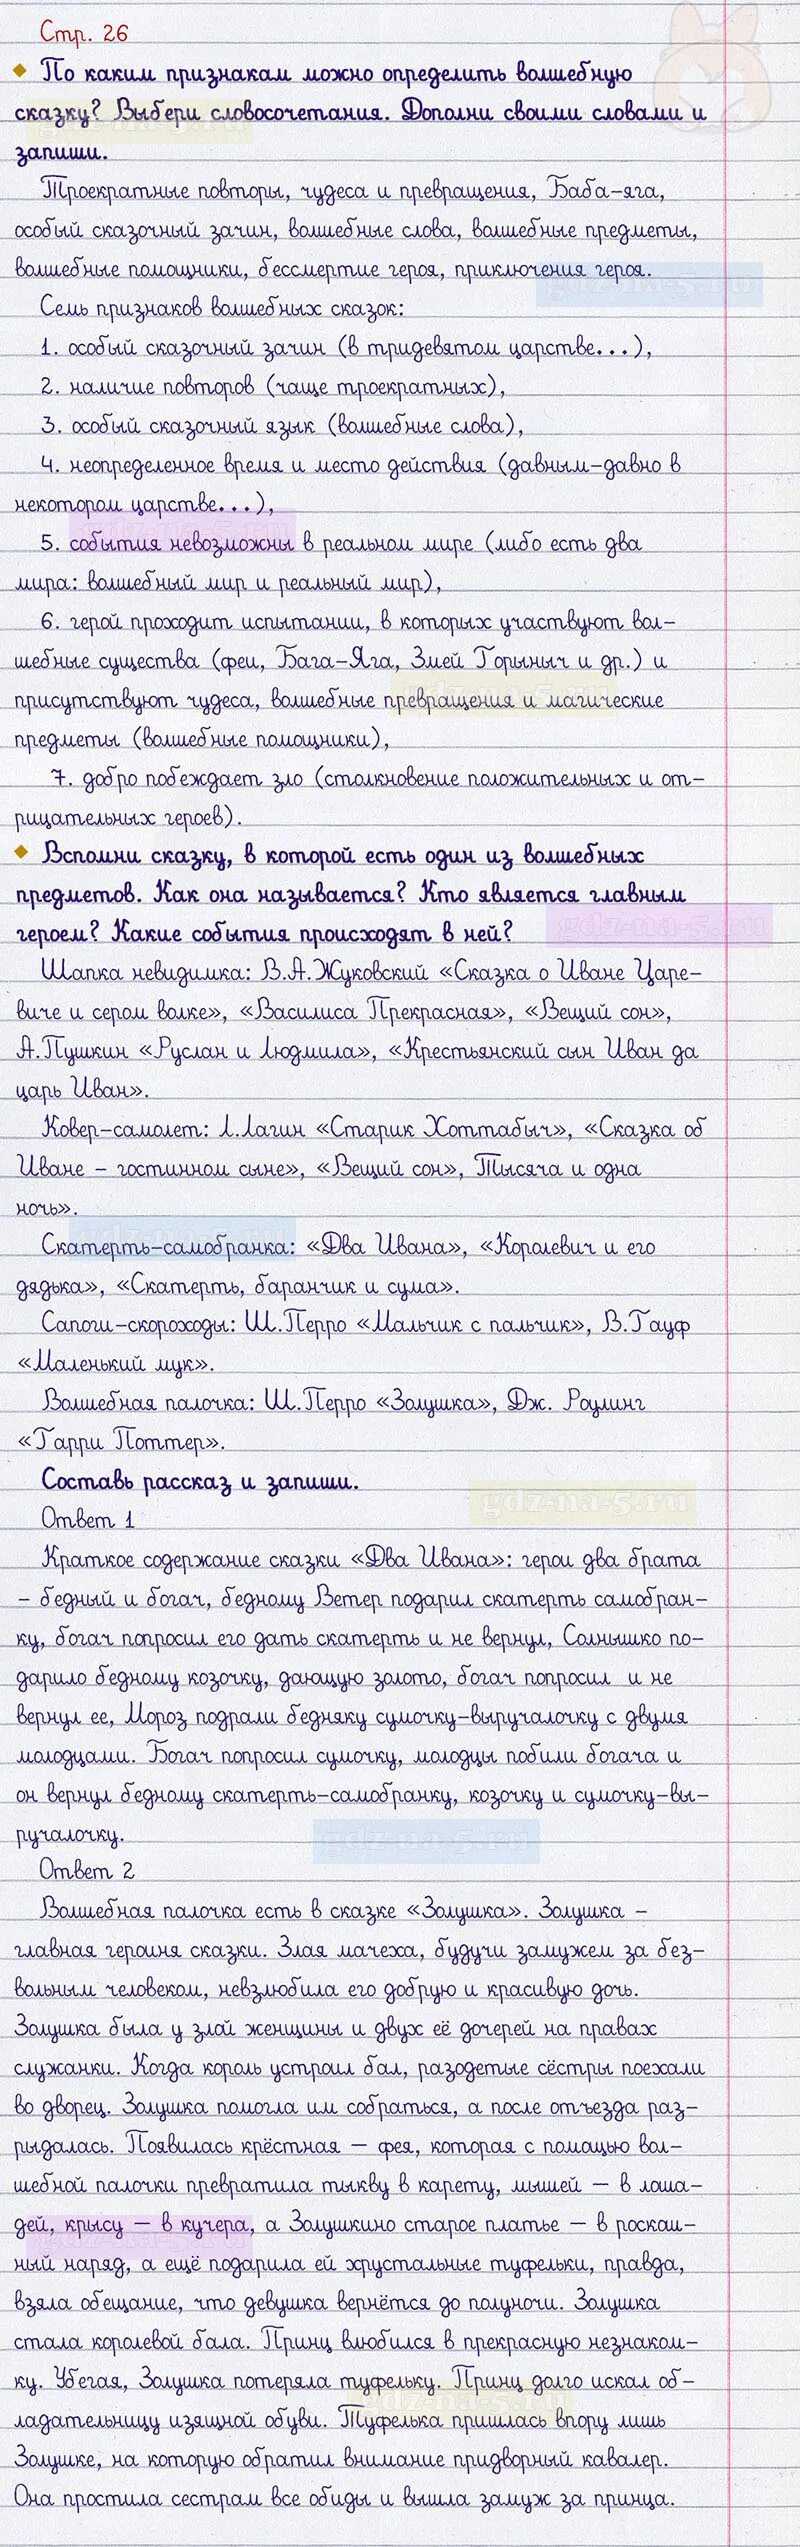 Стр. 26
По каким признакам можно определить волшебную
сказку? Выбери словосочетания. Дополни своими словами и
запиши.
Троекратные повторы, чудеса и превращения, Баба-яга,
особый сказочный зачин, волшебные слова, волшебные предметы,
волшебные помощники, бессмертие героя, приключения героя.
gdz-na-5.ru
Семь признаков волшебных сказок:
1. особый сказочный зачин (в тридевятом царстве...),
2. наличие повторов (чаще троекратных),
3. особый сказочный язык (волшебные слова),
4. неопределенное время и место действия (давным-давно в
некотором царстве...),
5. события невозможны в реальном мире (либо есть два
мира: волшебный мир и реальный мир),
6. герой проходит испытании, в которых участвуют вол-
шебные существа (феи, Бага-Яга, Змей Горыныч и др.) и
присутствуют чудеса, волшебные превращения и магические
предметы (волшебные помощники),
7. добро побеждает зло (столкновение положительных и от-
рицательных героев).
Вспомни сказку, в которой есть один из волшебных
предметов. Как она называется? Кто является главным
героем? Какие события происходят в ней?
gdz-na-5.ru
Шапка невидимка: В.А.Жуковский «Сказка о Иване Царе-
виче и сером волке», «Василиса Прекрасная», «Вещий сон»,
А.Пушкин «Руслан и Людмила», «Крестьянский сын Иван да
царь Иван».
Ковер-самолет: Л.Лагин «Старик Хоттабыч», «Сказка об
Иване - гостинном сыне», «Вещий сон», Тысяча и одна
ночь».
Скатерть-самобранка: «Два Ивана», «Королевич и его
дядька», «Скатерть, баранчик и сума».
Сапоги-скороходы: Ш.Перро «Мальчик с пальчик», В.Гауф
«Маленький мук».
Волшебная палочка: Ш.Перро «Золушка», Дж. Роулинг
«Гарри Поттер».
Составь рассказ и запиши.
gdz-na-5.ru
Ответ 1
Краткое содержание сказки «Два Ивана»: герои два брата
- бедный и богач, бедному Ветер подарил скатерть самобран-
ку, богач попросил его дать скатерть и не вернул, Солнышко по-
дарило бедному козочку, дающую золото, богач попросил и не
вернул ее, Мороз подрали бедняку сумочку-выручалочку с двумя
молодцами. Богач попросил сумочку, молодцы побили богача и
он вернул бедному скатерть-самобранку, козочку и сумочку-вы-
ручалочку.
gdz-na-5.ru
Ответ 2
Волшебная палочка есть в сказке «Золушка». Золушка -
главная героиня сказки. Злая мачеха, будучи замужем за без-
вольным человеком, невзлюбила его добрую и красивую дочь.
Золушка была у злой женщины и двух её дочерей на правах
служанки. Когда король устроил бал, разодетые сёстры поехали
во дворец. Золушка помогла им собраться, а после отъезда раз-
рыдалась. Появилась крёстная — фея, которая с помощью вол-
шебной палочки превратила тыкву в карету, мышей — в лоша-
дей, крысу — в кучера, а Золушкино старое платье — в роскош-
ный наряд, а ещё подарила ей хрустальные туфельки, правда,
взяла обещание, что девушка вернётся до полуночи. Золушка
стала королевой бала. Принц влюбился в прекрасную незнаком-
ку. Убегая, Золушка потеряла туфельку. Принц долго искал об-
ладательницу изящной обуви. Туфелька пришлась впору лишь
Золушке, на которую обратил внимание придворный кавалер.
Она простила сестрам все обиды и вышла замуж за принца.